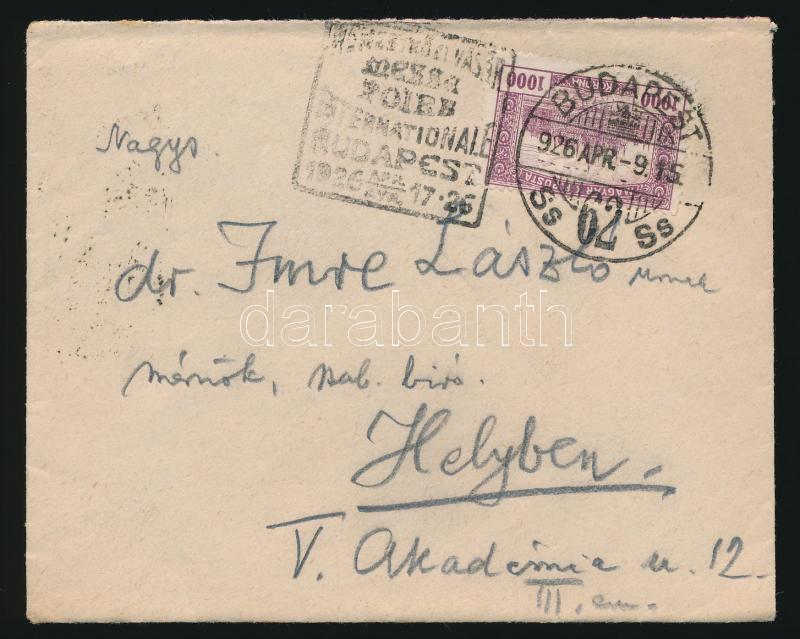 NEMZETKÖZI VÁSÁR
messa
FOIRE
INTERNATIONALE
BUDAPEST
1926 17-26
1000 KORONA 1000
MAGYAR KIR. POSTA
BUDAPEST
926 APR.-9. 15
Ss 70 Ss
Nagys.
dr. Imre László úrnak
darabanth
mérnök, szab. biró.
Helyben.
V. Akadémia u. 12.
III. em.